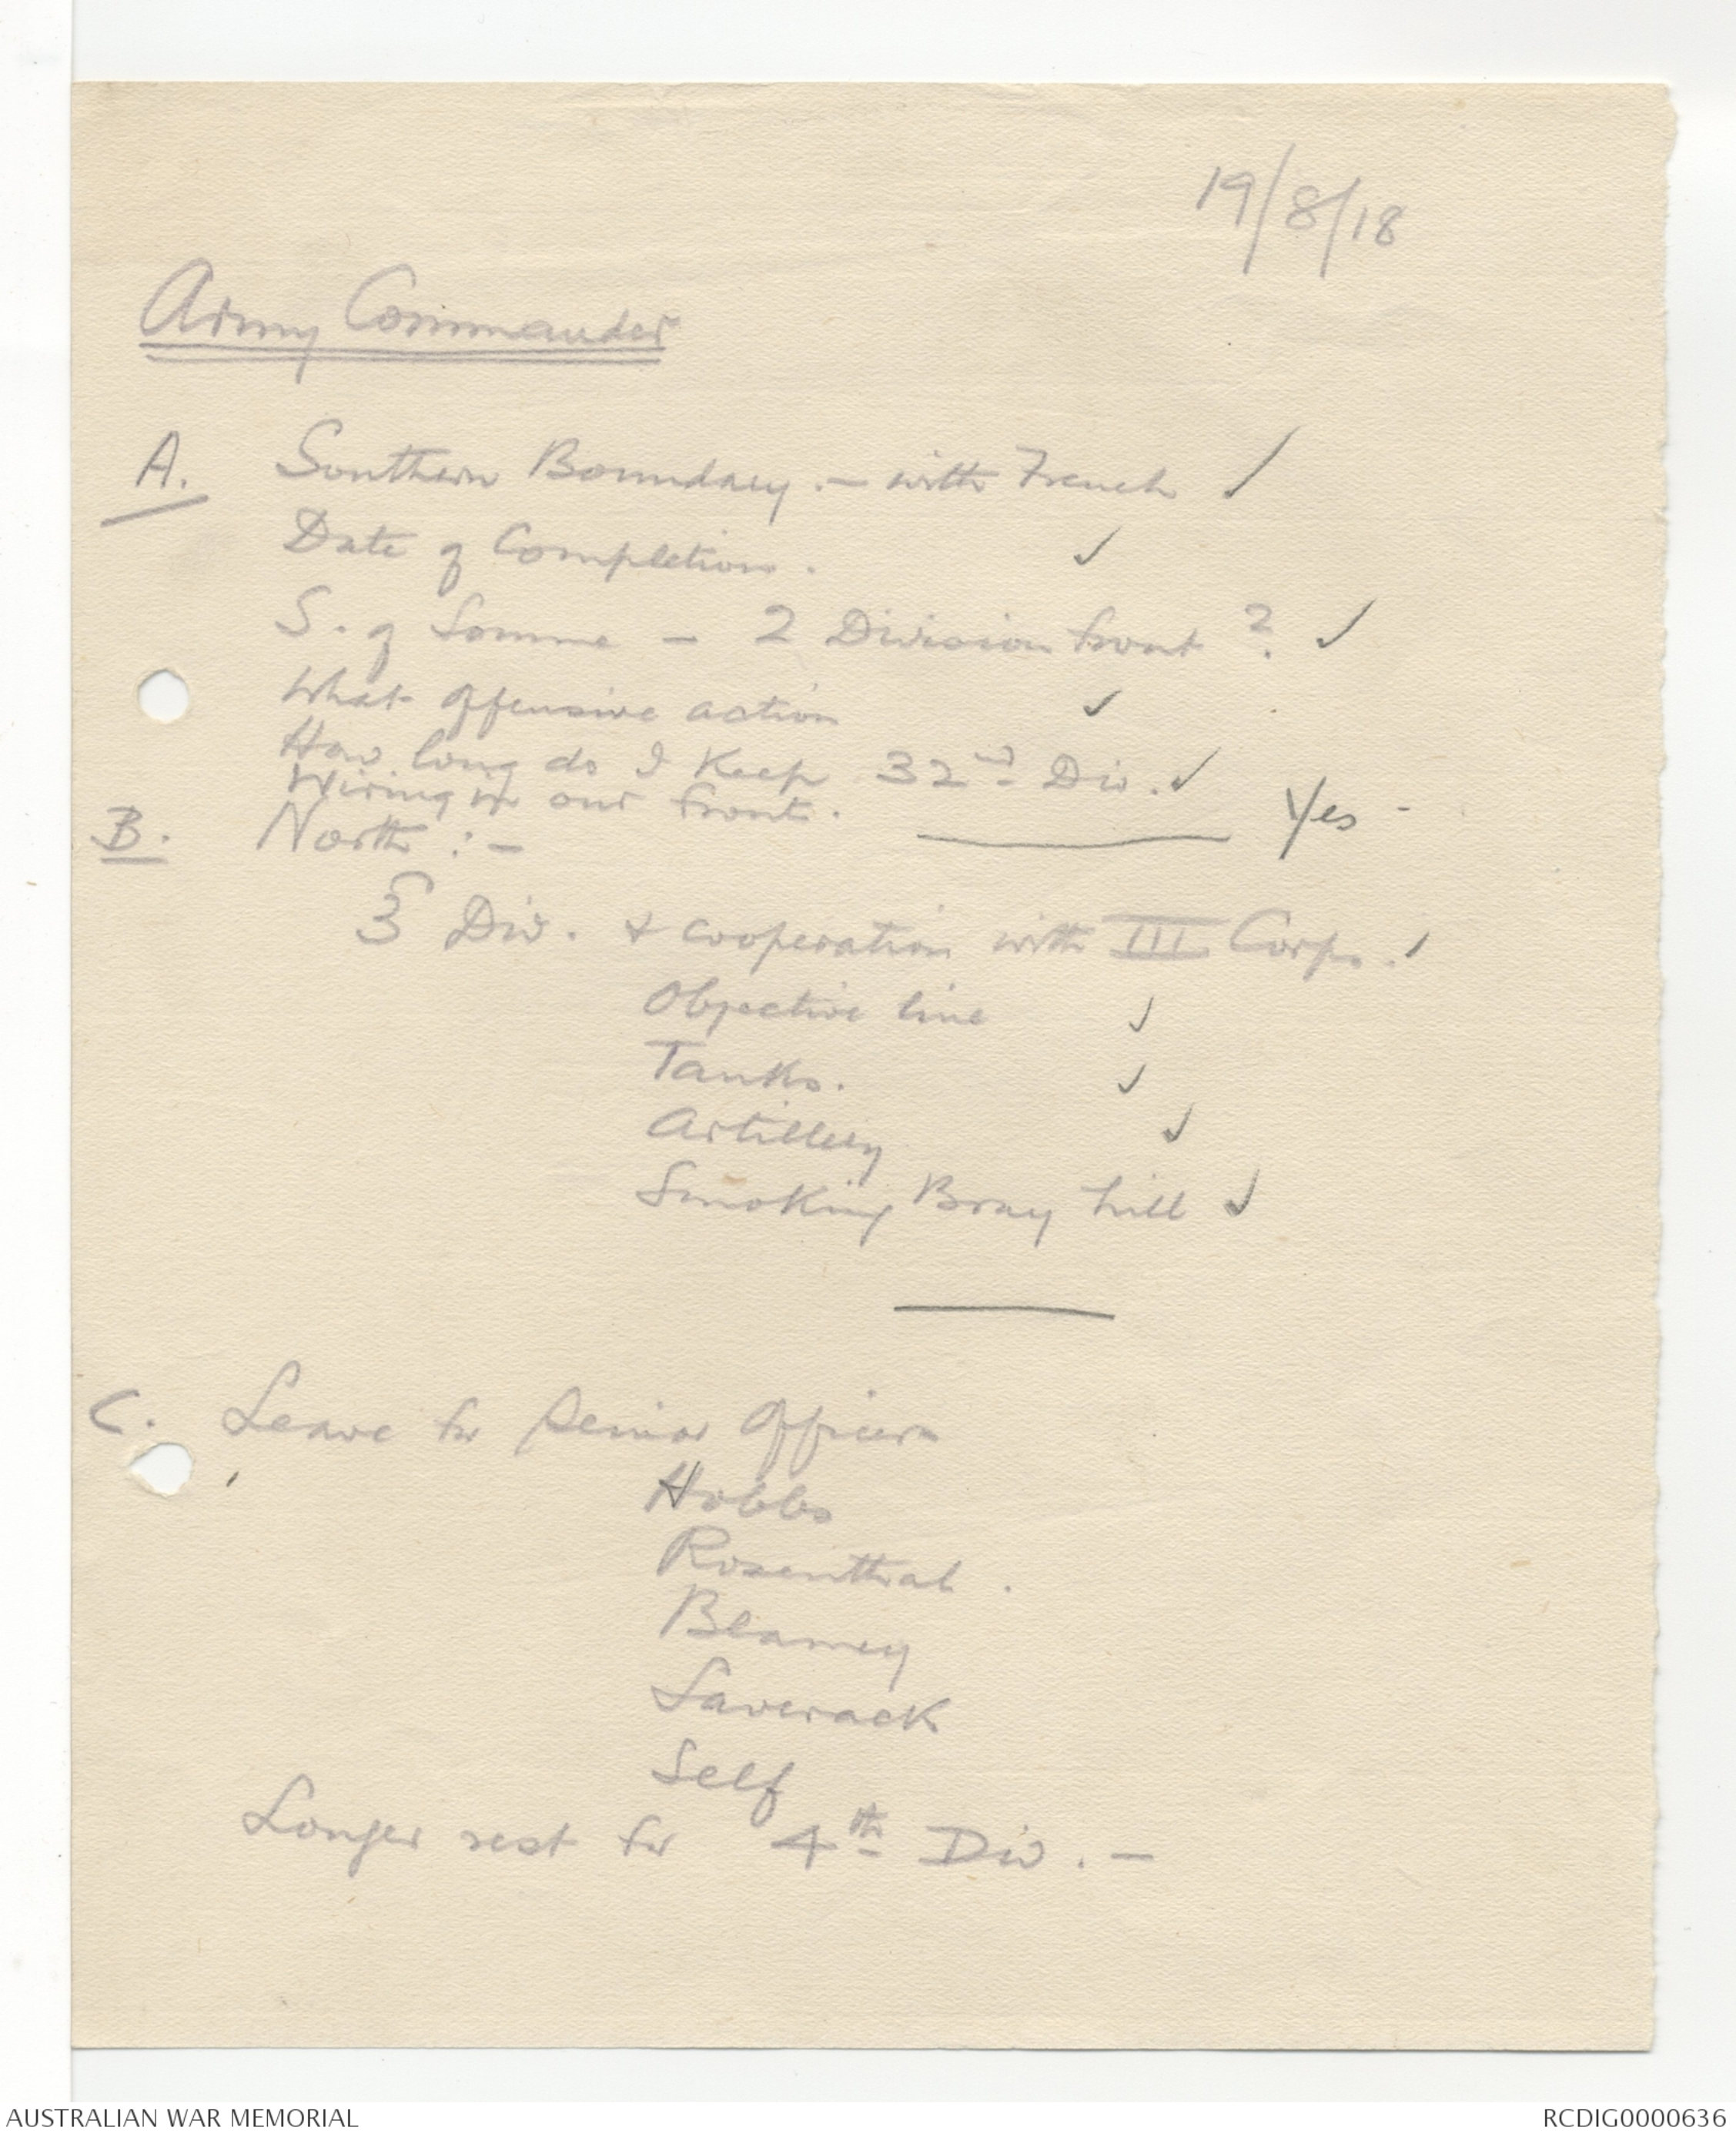 19/8/18
Army Commander
A. Southern Boundary. - with French ✓
Date of Completion. ✓
S. of Somme - 2 Division front? ✓
What offensive action ✓
How long do I keep 32nd Div. ✓
Wiring on our front. Yes -
B. North :-
3 Div. & cooperation with III Corps. ✓
Objective line ✓
Tanks. ✓
Artillery ✓
Smoking Bray hill ✓
C. Leave for Senior Officers
Hobbs
Rosenthal.
Blamey
Laverack
Self
Longer rest for 4th Div. -
AUSTRALIAN WAR MEMORIAL
RCDIG0000636